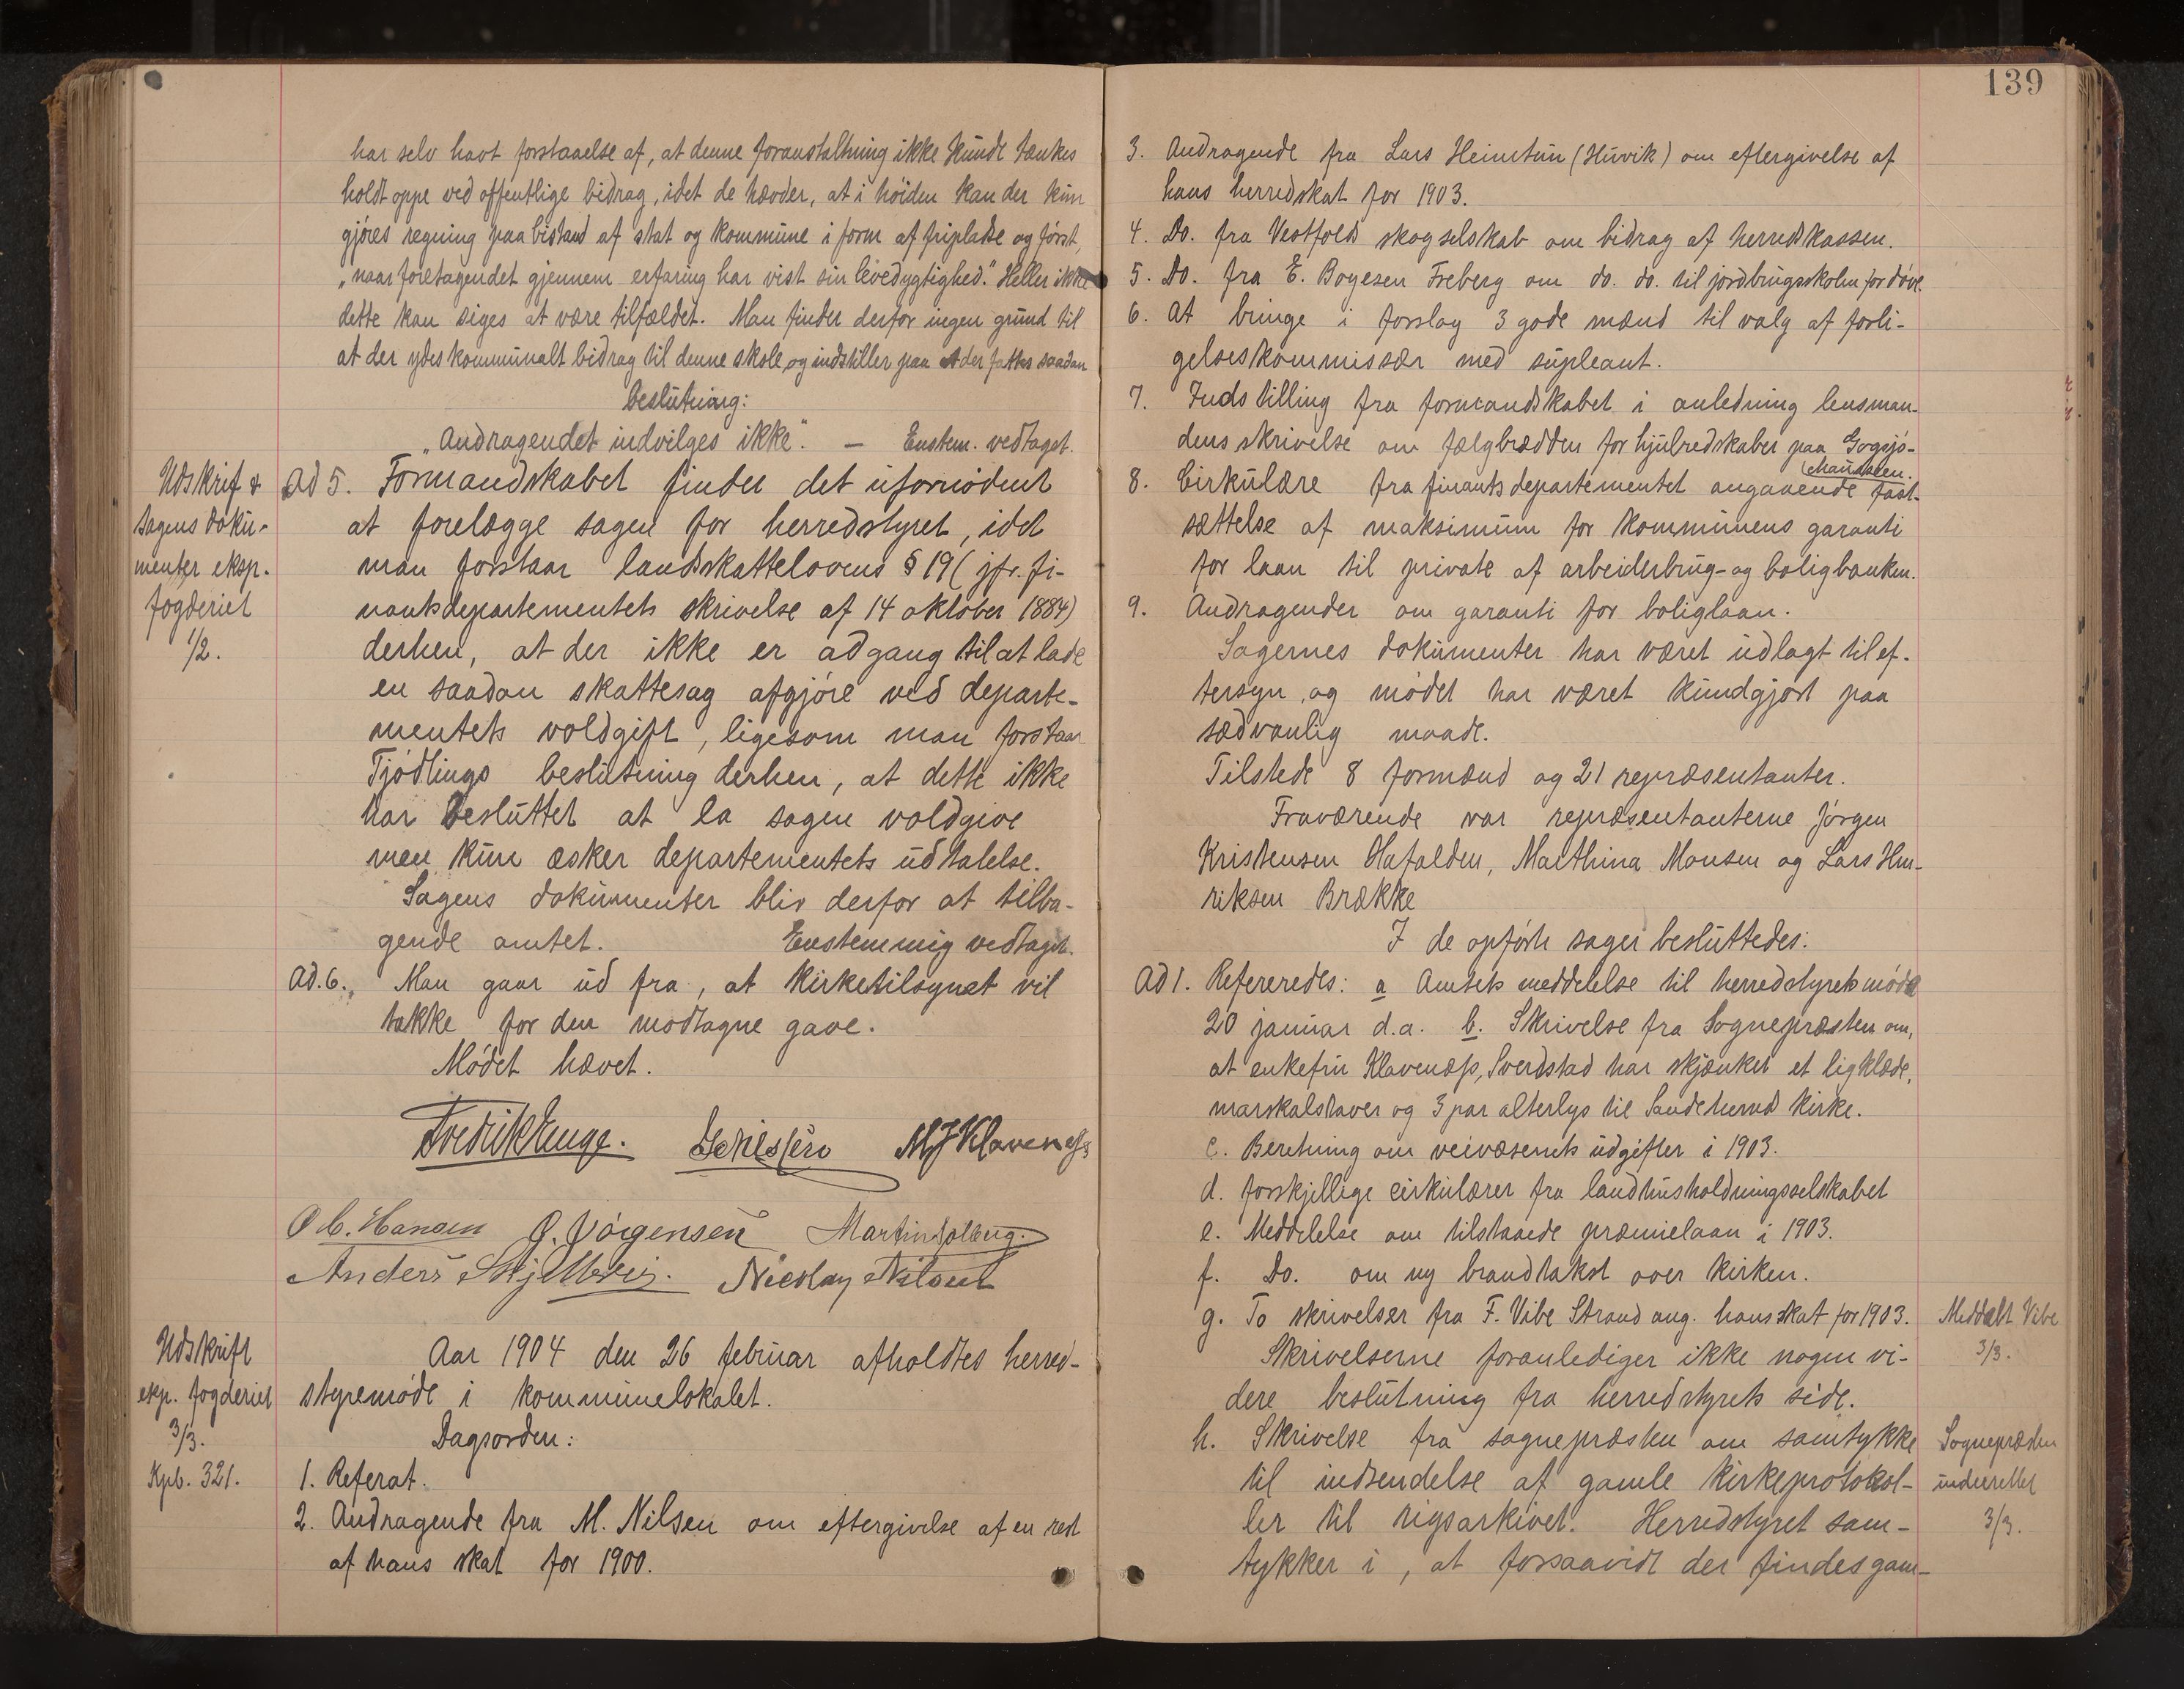 har selv havt forstaaelse af, at denne foranstaltning ikke kunde tænkes
holdt oppe ved offentlige bidrag, idet de hævder, at i høiden kan der kun
gjøres regning paa bistand af stat og kommune i form af fripladse og først,
"naar foretagendet gjennem erfaring har vist sin levedygtighed." Heller ikke
dette kan siges at være tilfældet. Man finder derfor ingen grund til
at der ydes kommunalt bidrag til denne skole og indstiller paa at der fattes saadan
beslutning:
"Andragendet indvilges ikke". — Enstem. vedtaget.
Udskrift &
sagens doku-
menter eksp.
fogderiet
1/2.
Ad 5. Formandskabet finder det ufornødent
at forelægge sagen for herredstyret, idet
man forstaar landsskattelovens § 19 (jfr. fi-
nantsdepartementets skrivelse af 14 oktober 1884)
derhen, at der ikke er adgang til at lade
en saadan skattesag afgjøre ved departe-
mentets voldgift, ligesom man forstaar
Tjødlings beslutning derhen, at dette ikke
har besluttet at la sagen voldgive
men kun æsker departementets udtalelse.
Sagens dokumenter bliv derfor at tilba-
gende amtet. Enstemmig vedtaget.
Ad. 6. Man gaar ud fra, at kirketilsynet vil
takke for den modtagne gave.
Mødet hævet.
Fredrik Enge. M J Klaveness
O C. Hansen O. Jørgensen Martin Solberg.
Anders Skjellevig. Nicolay Nilsen
Udskrift
eksp. fogderiet
3/3.
Kpb. 321.
Aar 1904 den 26 februar afholdtes herred-
styremøde i kommunelokalet.
Dagsorden:
1. Referat.
2. Andragende fra M. Nilsen om eftergivelse af en rest
af hans skat for 1900.
139
3. Andragende fra Lars Heimtun (Huvik) om eftergivelse af
hans herredskat for 1903.
4. Do. fra Vestfold skogselskab om bidrag af herredskassen.
5. Do. fra E. Boyesen Freberg om do. do. til jordbrugsskolen for døve.
6. At bringe i forslag 3 gode mænd til valg af forli-
gelseskommissær med supleant.
7. Indstilling fra formandskabet i anledning lensman-
dens skrivelse om fælgbrædden for hjulredskaber paa Gogsjø-
chausseen.
8. Cirkulære fra finantsdepartementet angaaende fast-
sættelse af maksimum for kommunens garanti
for laan til private af arbeiderbrug- og boligbanken.
9. Andragender om garanti for boliglaan.
Sagernes dokumenter har været udlagt til ef-
tersyn, og mødet har været kundgjort paa
sædvanlig maade.
Tilstede 8 formænd og 21 repræsentanter.
Fraværende var repræsentanterne Jørgen
Kristensen Hafalden, Marthina Monsen og Lars Hen-
riksen Brække
I de opførte sager besluttedes:
Ad 1. Refereredes: a Amtets meddelelse til herredstyrets møde
20 januar d.a. b. Skrivelse fra Sognepræsten om,
at enkefru Klavenæss, Sverdstad har skjænket et ligklæde,
marskalstaver og 3 par alterlys til Sandeherred kirke.
c. Beretning om veivæsenets udgifter i 1903.
d. forskjellige cirkulærer fra landhusholdningsselskabet
e. Meddelelse om tilstaaede præmielaan i 1903.
f. Do. om ny brandtakst over kirken.
g. To skrivelser fra F. Vibe Strand ang. hans skat for 1903.
Skrivelserne foranlediger ikke nogen vi-
dere beslutning fra herredstyrets side.
Meddelt Vibe
3/3.
h. Skrivelse fra sognepræsten om samtykke
til indsendelse af gamle kirkeprotokol-
ler til rigsarkivet. Herredstyret sam-
tykker i, at forsaavidt der findes gam-
Sognepræsten
underrettet
3/3.